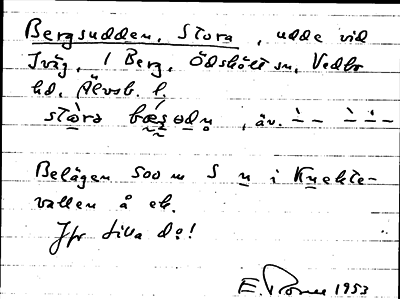 Bergsudden, Stora, udde vid
Iväg, 1 Berg, Ödskölt sn, Vedbo
hd, Älvsb. l.
stɑ̀rɑ bæ̀ʂɵdn̥, äv. ̀– ̀ ̀–
Belägen 500 m S n i Knekte-
vallen å ek.
Jfr Lilla do!
E. 1953